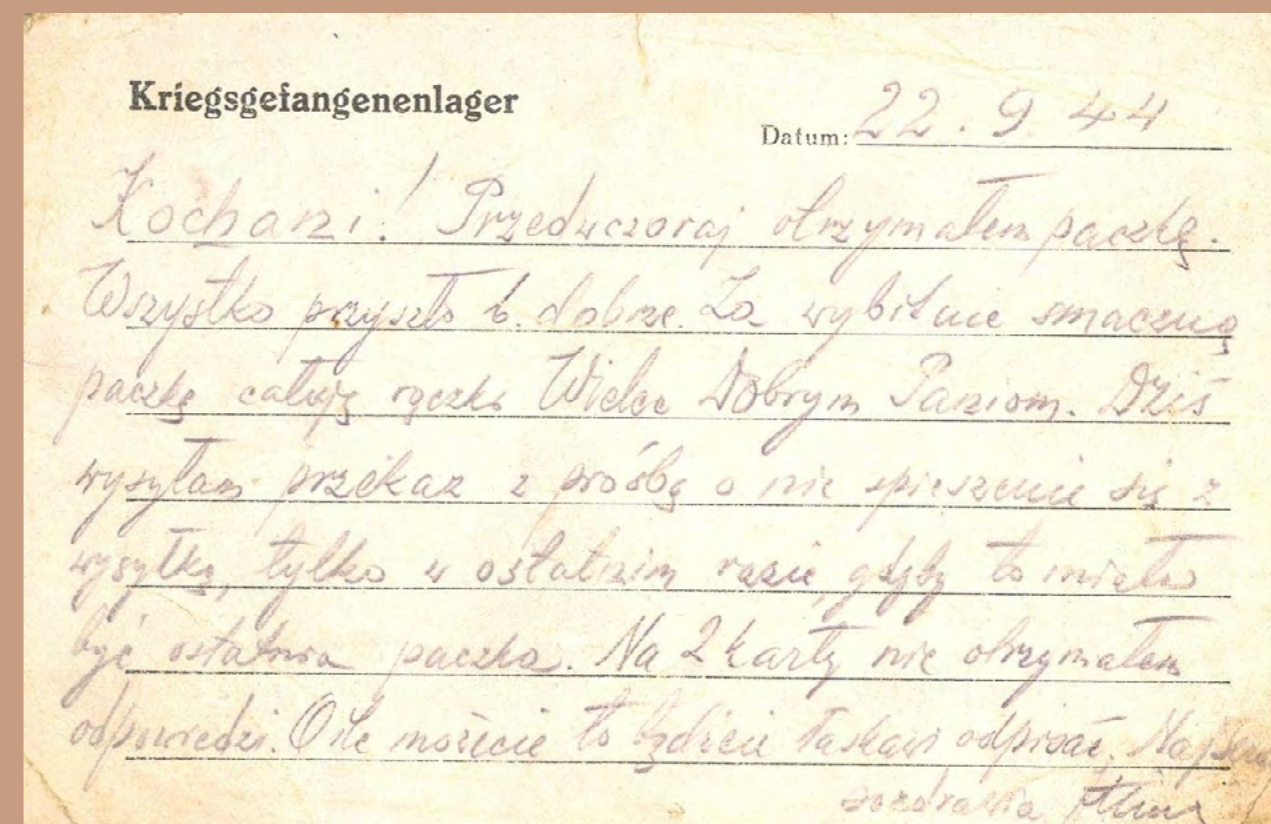 Kriegsgefangenenlager
Datum: 22. 9. 44
Kochani! Przedwczoraj otrzymałem paczkę.
Wszystko przyszło b. dobrze. Za wybitnie smaczną
paczkę całuję rączki Wielce Dobrym Paniom. Dziś
wysyłam przekaz z prośbą o nie spieszenie się z
wysyłką, tylko w ostatnim razie, gdyby to miała
być ostatnia paczka. Na 2 karty nie otrzymałem
odpowiedzi. O ile możecie to bądźcie łaskawi odpisać.
pozdrawia